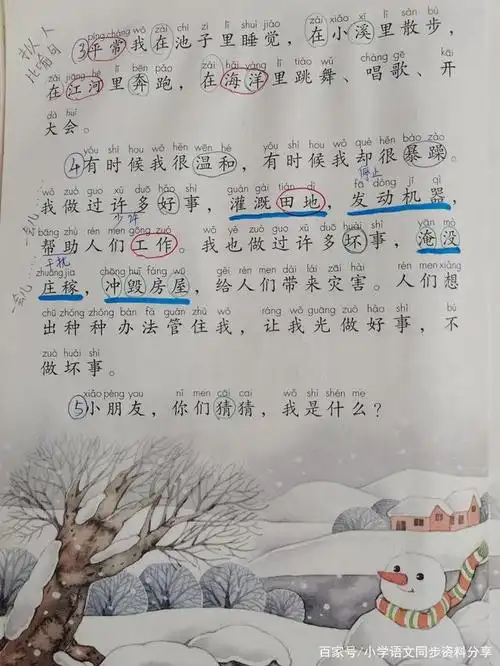 拟人
比喻句
píng cháng wǒ zài chí zi lǐ shuì jiào zài xiǎo xī lǐ sàn bù
③平常我在池子里睡觉，在小溪里散步，
zài jiāng hé lǐ bēn pǎo zài hǎi yáng lǐ tiào wǔ chàng gē kāi
在江河里奔跑，在海洋里跳舞、唱歌、开
dà huì
大会。
yǒu shí hou wǒ hěn wēn hé yǒu shí hou wǒ què hěn bào zào
④有时候我很温和，有时候我却很暴躁。
停止
wǒ zuò guo xǔ duō hǎo shì guàn gài tián dì fā dòng jī qì
我做过许多好事，灌溉田地，发动机器，
少许
一会儿
bāng zhù rén men gōng zuò wǒ yě zuò guo xǔ duō huài shì yān mò
帮助人们工作。我也做过许多坏事，淹没
干扰
zhuāng jia chōng huǐ fáng wū gěi rén men dài lái zāi hài rén men xiǎng
庄稼，冲毁房屋，给人们带来灾害。人们想
一会儿
chū zhǒng zhǒng bàn fǎ guǎn zhù wǒ ràng wǒ guāng zuò hǎo shì bù
出种种办法管住我，让我光做好事，不
zuò huài shì
做坏事。
xiǎo péng you nǐ men cāi cai wǒ shì shén me
⑤小朋友，你们猜猜，我是什么？
百家号/小学语文同步资料分享